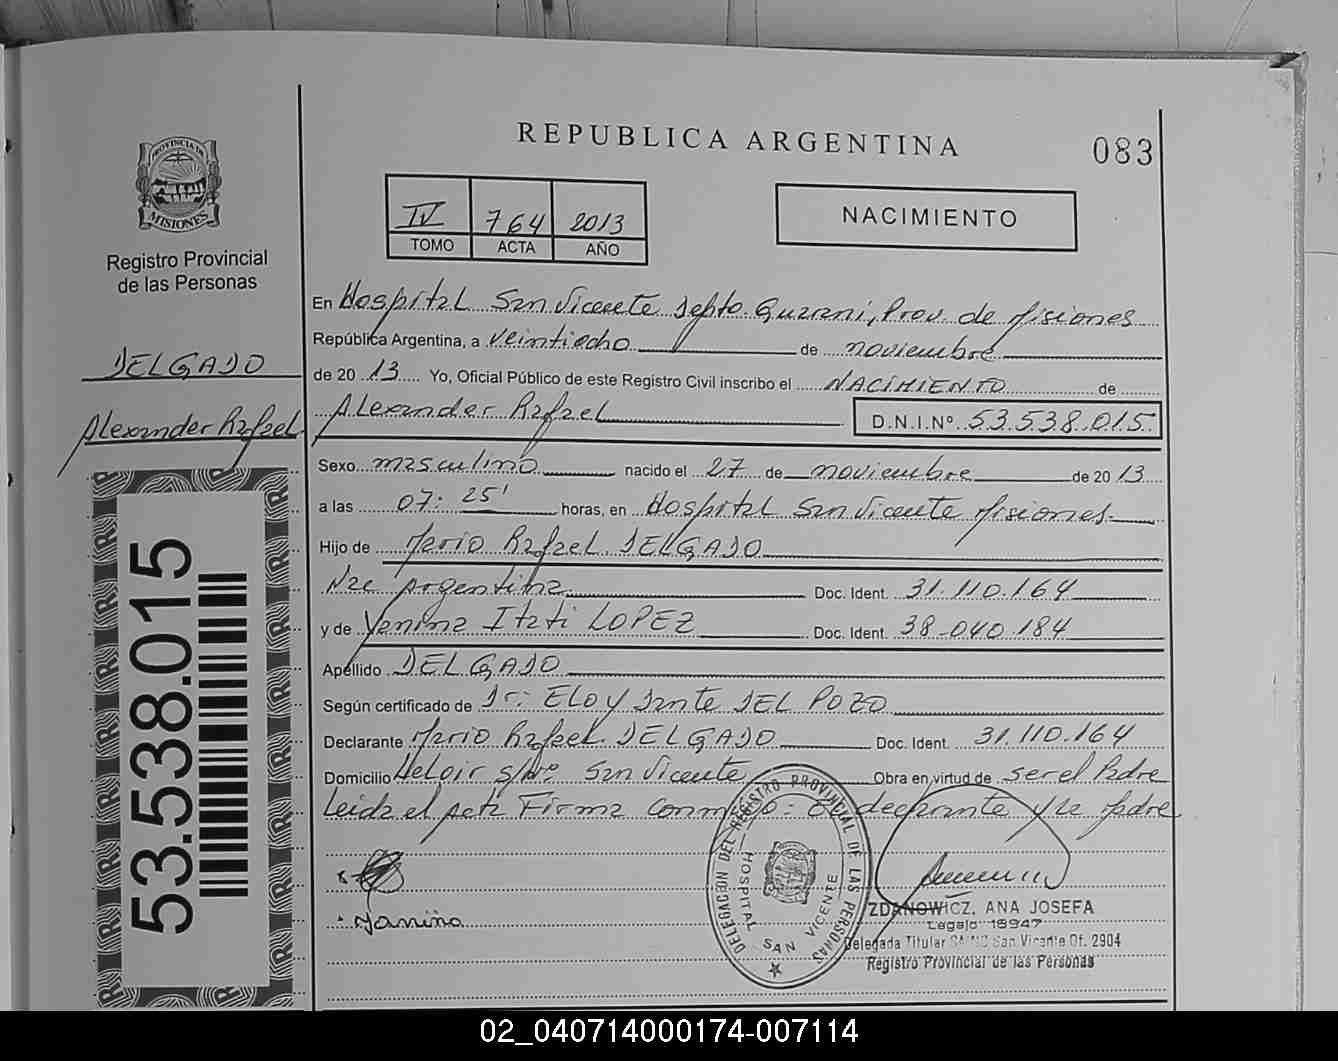 REPUBLICA ARGENTINA
083
PROVINCIA DE
MISIONES
Registro Provincial
de las Personas
IV 764 2013
TOMO ACTA AÑO
NACIMIENTO
DELGADO
Alexander Rafael
53.538.015
En Hospital San Vicente Depto. Guarani, Prov. de Misiones
República Argentina, a veintiocho de noviembre
de 20 13 Yo, Oficial Público de este Registro Civil inscribo el NACIMIENTO de
Alexander Rafael D.N.I.Nº 53.538.015
Sexo masculino nacido el 27 de noviembre de 20 13
a las 07: 25' horas, en Hospital San Vicente Misiones
Hijo de Mario Rafael DELGADO
Nac argentina Doc. Ident. 31.110.164
y de Yanina Itati LOPEZ Doc. Ident. 38.040.184
Apellido DELGADO
Según certificado de Dr: ELOY Dante DEL POZO
Declarante Mario Rafael DELGADO Doc. Ident. 31.110.164
Domicilio s/Nº San Vicente Obra en virtud de ser el Padre
Leida el acta Firma conmigo: El declarante y la Madre
Yanina
DELEGACION DEL REGISTRO PROVINCIAL DE LAS PERSONAS
HOSPITAL SAN VICENTE
ZDANOWICZ, ANA JOSEFA
Legajo 18947
Delegada Titular San Vicente Of. 2904
Registro Provincial de las Personas
02_040714000174-007114